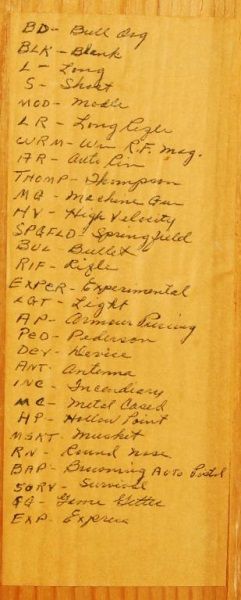 BD - Bull Dog
BLK - Blank
L - Long
S - Short
MOD - Modle
LR - Long Rifle
WRM - Win R.F. Mag.
AR - Auto Rim
THOMP - Thompson
MG - Machine Gun
HV - High Velocity
SPGFLD - Springfield
BUL - Bullet
RIF - Rifle
EXPER - Experimental
LGT - Light
AP - Armour Piercing
PED - Pederson
DEV - Device
ANT - Antenna
INC - Incendiary
MC - Metal Cased
HP - Hollow Point
MSKT - Musket
RN - Round Nose
BAP - Browning Auto Pistol
SURV - Survival
GG - Game Getter
EXP - Express